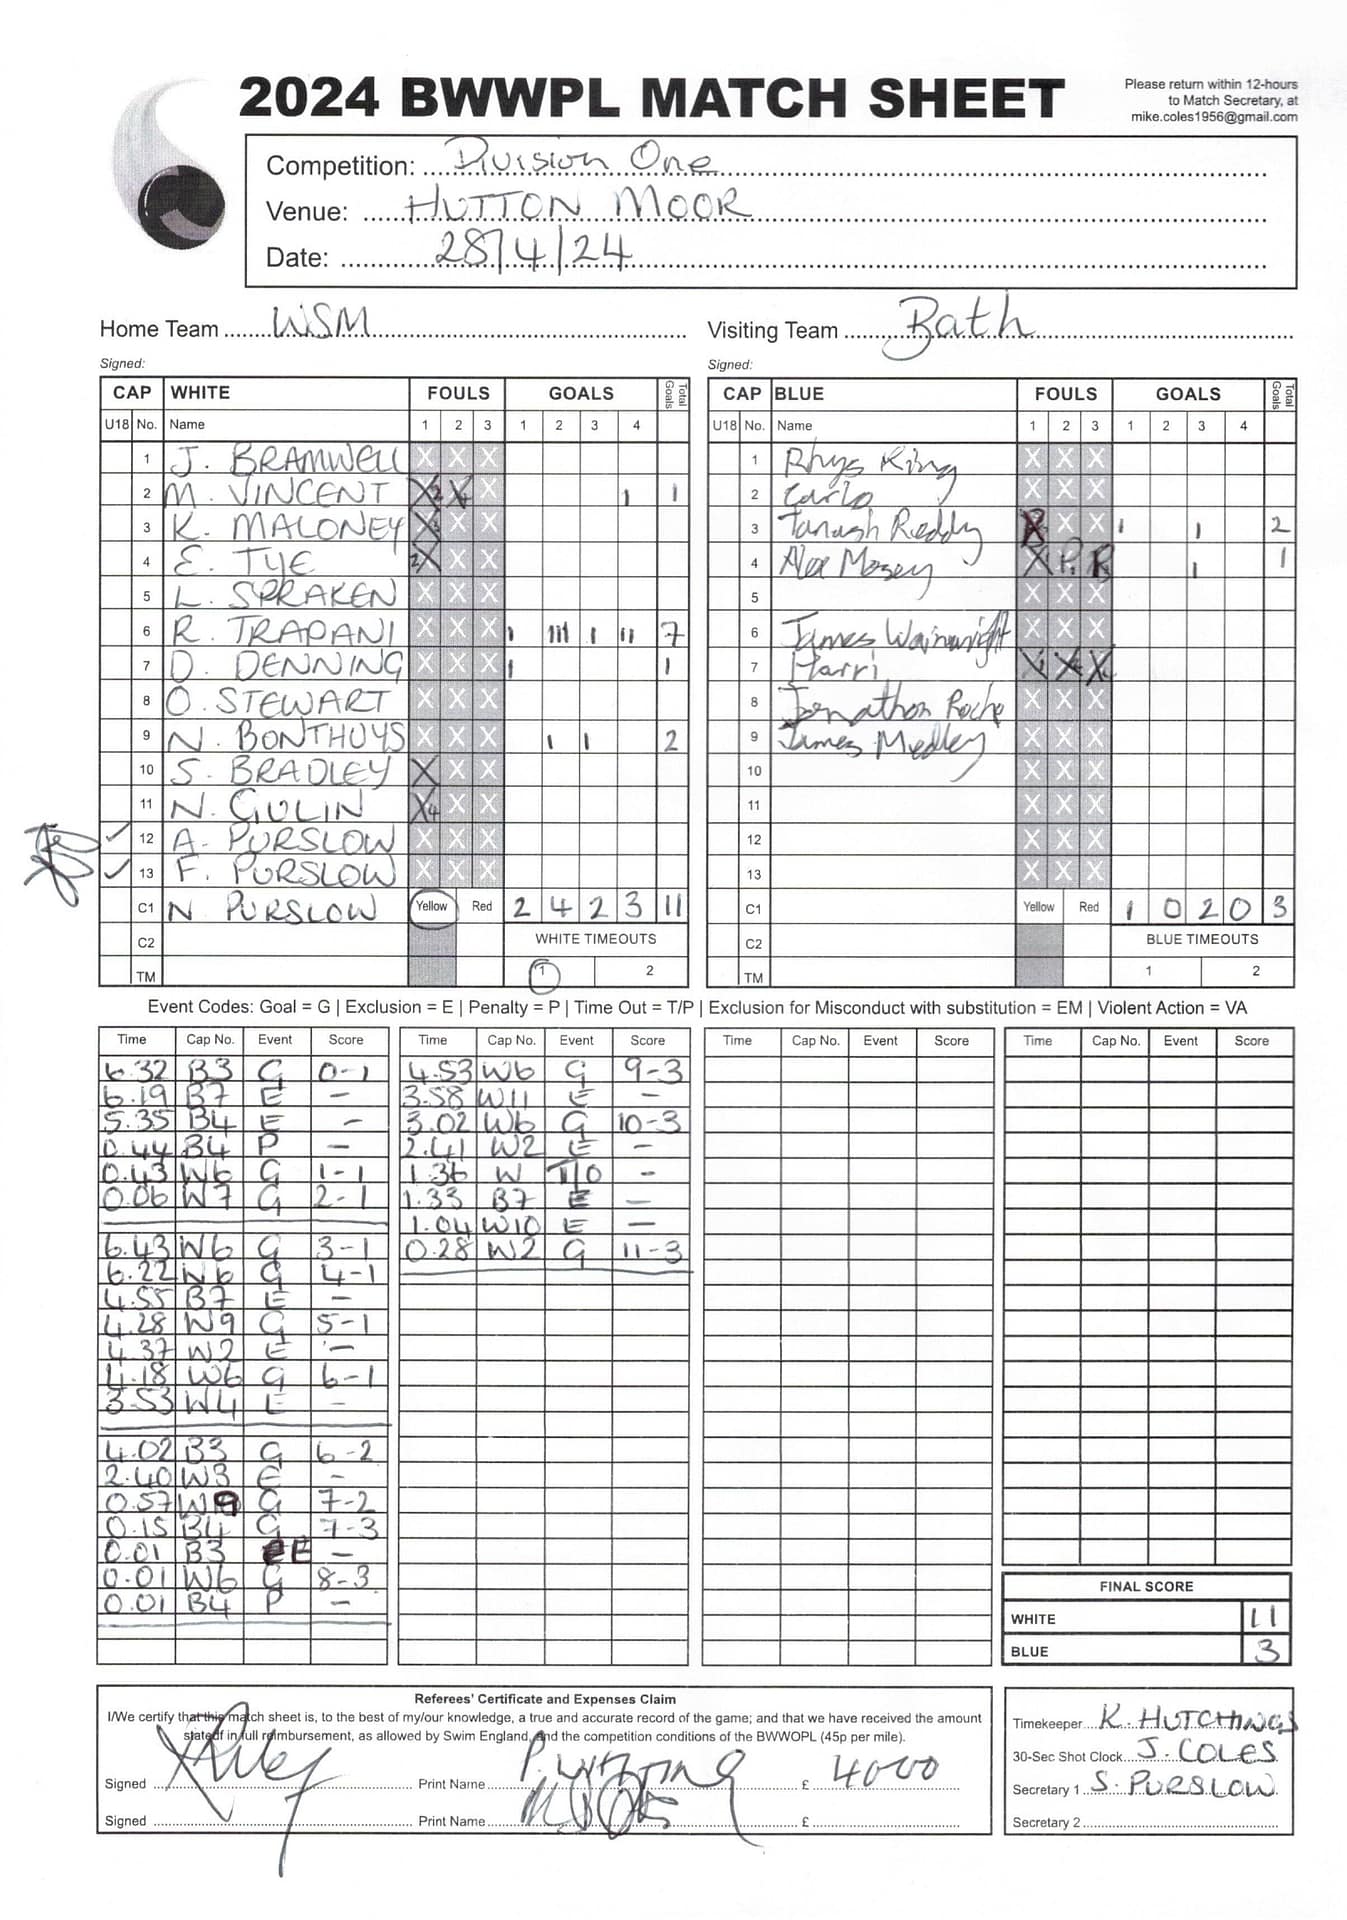 2024 BWWPL MATCH SHEET
Please return within 12-hours
to Match Secretary, at
mike.coles1956@gmail.com
Competition: Division One
Venue: HUTTON MOOR
Date: 28/4/24
Home Team WSM
Visiting Team Bath
Signed:
Signed:
CAP WHITE FOULS GOALS Total Goals
U18 No. Name 1 2 3 1 2 3 4
1 J. BRAMWELL X X X
2 M. VINCENT X2 X4 X 1 1
3 K. MALONEY X3 X X
4 E. TYE 2X X X
5 L. SPRAKEN X X X
6 R. TRAPANI X X X I III I II 7
7 D. DENNING X X X I 1
8 O. STEWART X X X
9 N. BONTHUYS X X X I I 2
10 S. BRADLEY X X X
11 N. GULIN X4 X X
✓ 12 A. PURSLOW X X X
✓ 13 F. PURSLOW X X X
C1 N PURSLOW Yellow Red 2 4 2 3 11
C2 WHITE TIMEOUTS
TM 1 2
CAP BLUE FOULS GOALS Total Goals
U18 No. Name 1 2 3 1 2 3 4
1 Rhys King X X X
2 Carlo X X X
3 Tanush Reddy X X I I 2
4 Alex Mosey X P P I 1
5 X X X
6 James Wainwright X X X
7 Harri X X X
8 Jonathon Roche X X X
9 James Medley X X X
10 X X X
11 X X X
12 X X X
13 X X X
C1 Yellow Red 1 0 2 0 3
C2 BLUE TIMEOUTS
TM 1 2
Event Codes: Goal = G | Exclusion = E | Penalty = P | Time Out = T/P | Exclusion for Misconduct with substitution = EM | Violent Action = VA
Time Cap No. Event Score
6.32 B3 G 0-1
6.19 B7 E –
5.35 B4 E –
0.44 B4 P –
0.43 W6 G 1-1
0.06 W7 G 2-1
6.43 W6 G 3-1
6.22 W6 G 4-1
4.55 B7 E –
4.28 W9 G 5-1
4.37 W2 E –
4.18 W6 G 6-1
3.53 W4 E –
4.02 B3 G 6-2
2.40 W3 E –
0.57 W9 G 7-2
0.15 B4 G 7-3
0.01 B3 E –
0.01 W6 G 8-3
0.01 B4 P –
Time Cap No. Event Score
4.53 W6 G 9-3
3.58 W11 E –
3.02 W6 G 10-3
2.41 W2 E –
1.36 W T/O –
1.33 B7 E –
1.04 W10 E –
0.28 W2 G 11-3
Time Cap No. Event Score
Time Cap No. Event Score
FINAL SCORE
WHITE 11
BLUE 3
Referees' Certificate and Expenses Claim
I/We certify that this match sheet is, to the best of my/our knowledge, a true and accurate record of the game; and that we have received the amount
stated in full reimbursement, as allowed by Swim England, and the competition conditions of the BWWOPL (45p per mile).
Signed Print Name P. £ 40.00
Signed Print Name £
Timekeeper K. HUTCHINGS
30-Sec Shot Clock J. COLES
Secretary 1 S. PURSLOW
Secretary 2